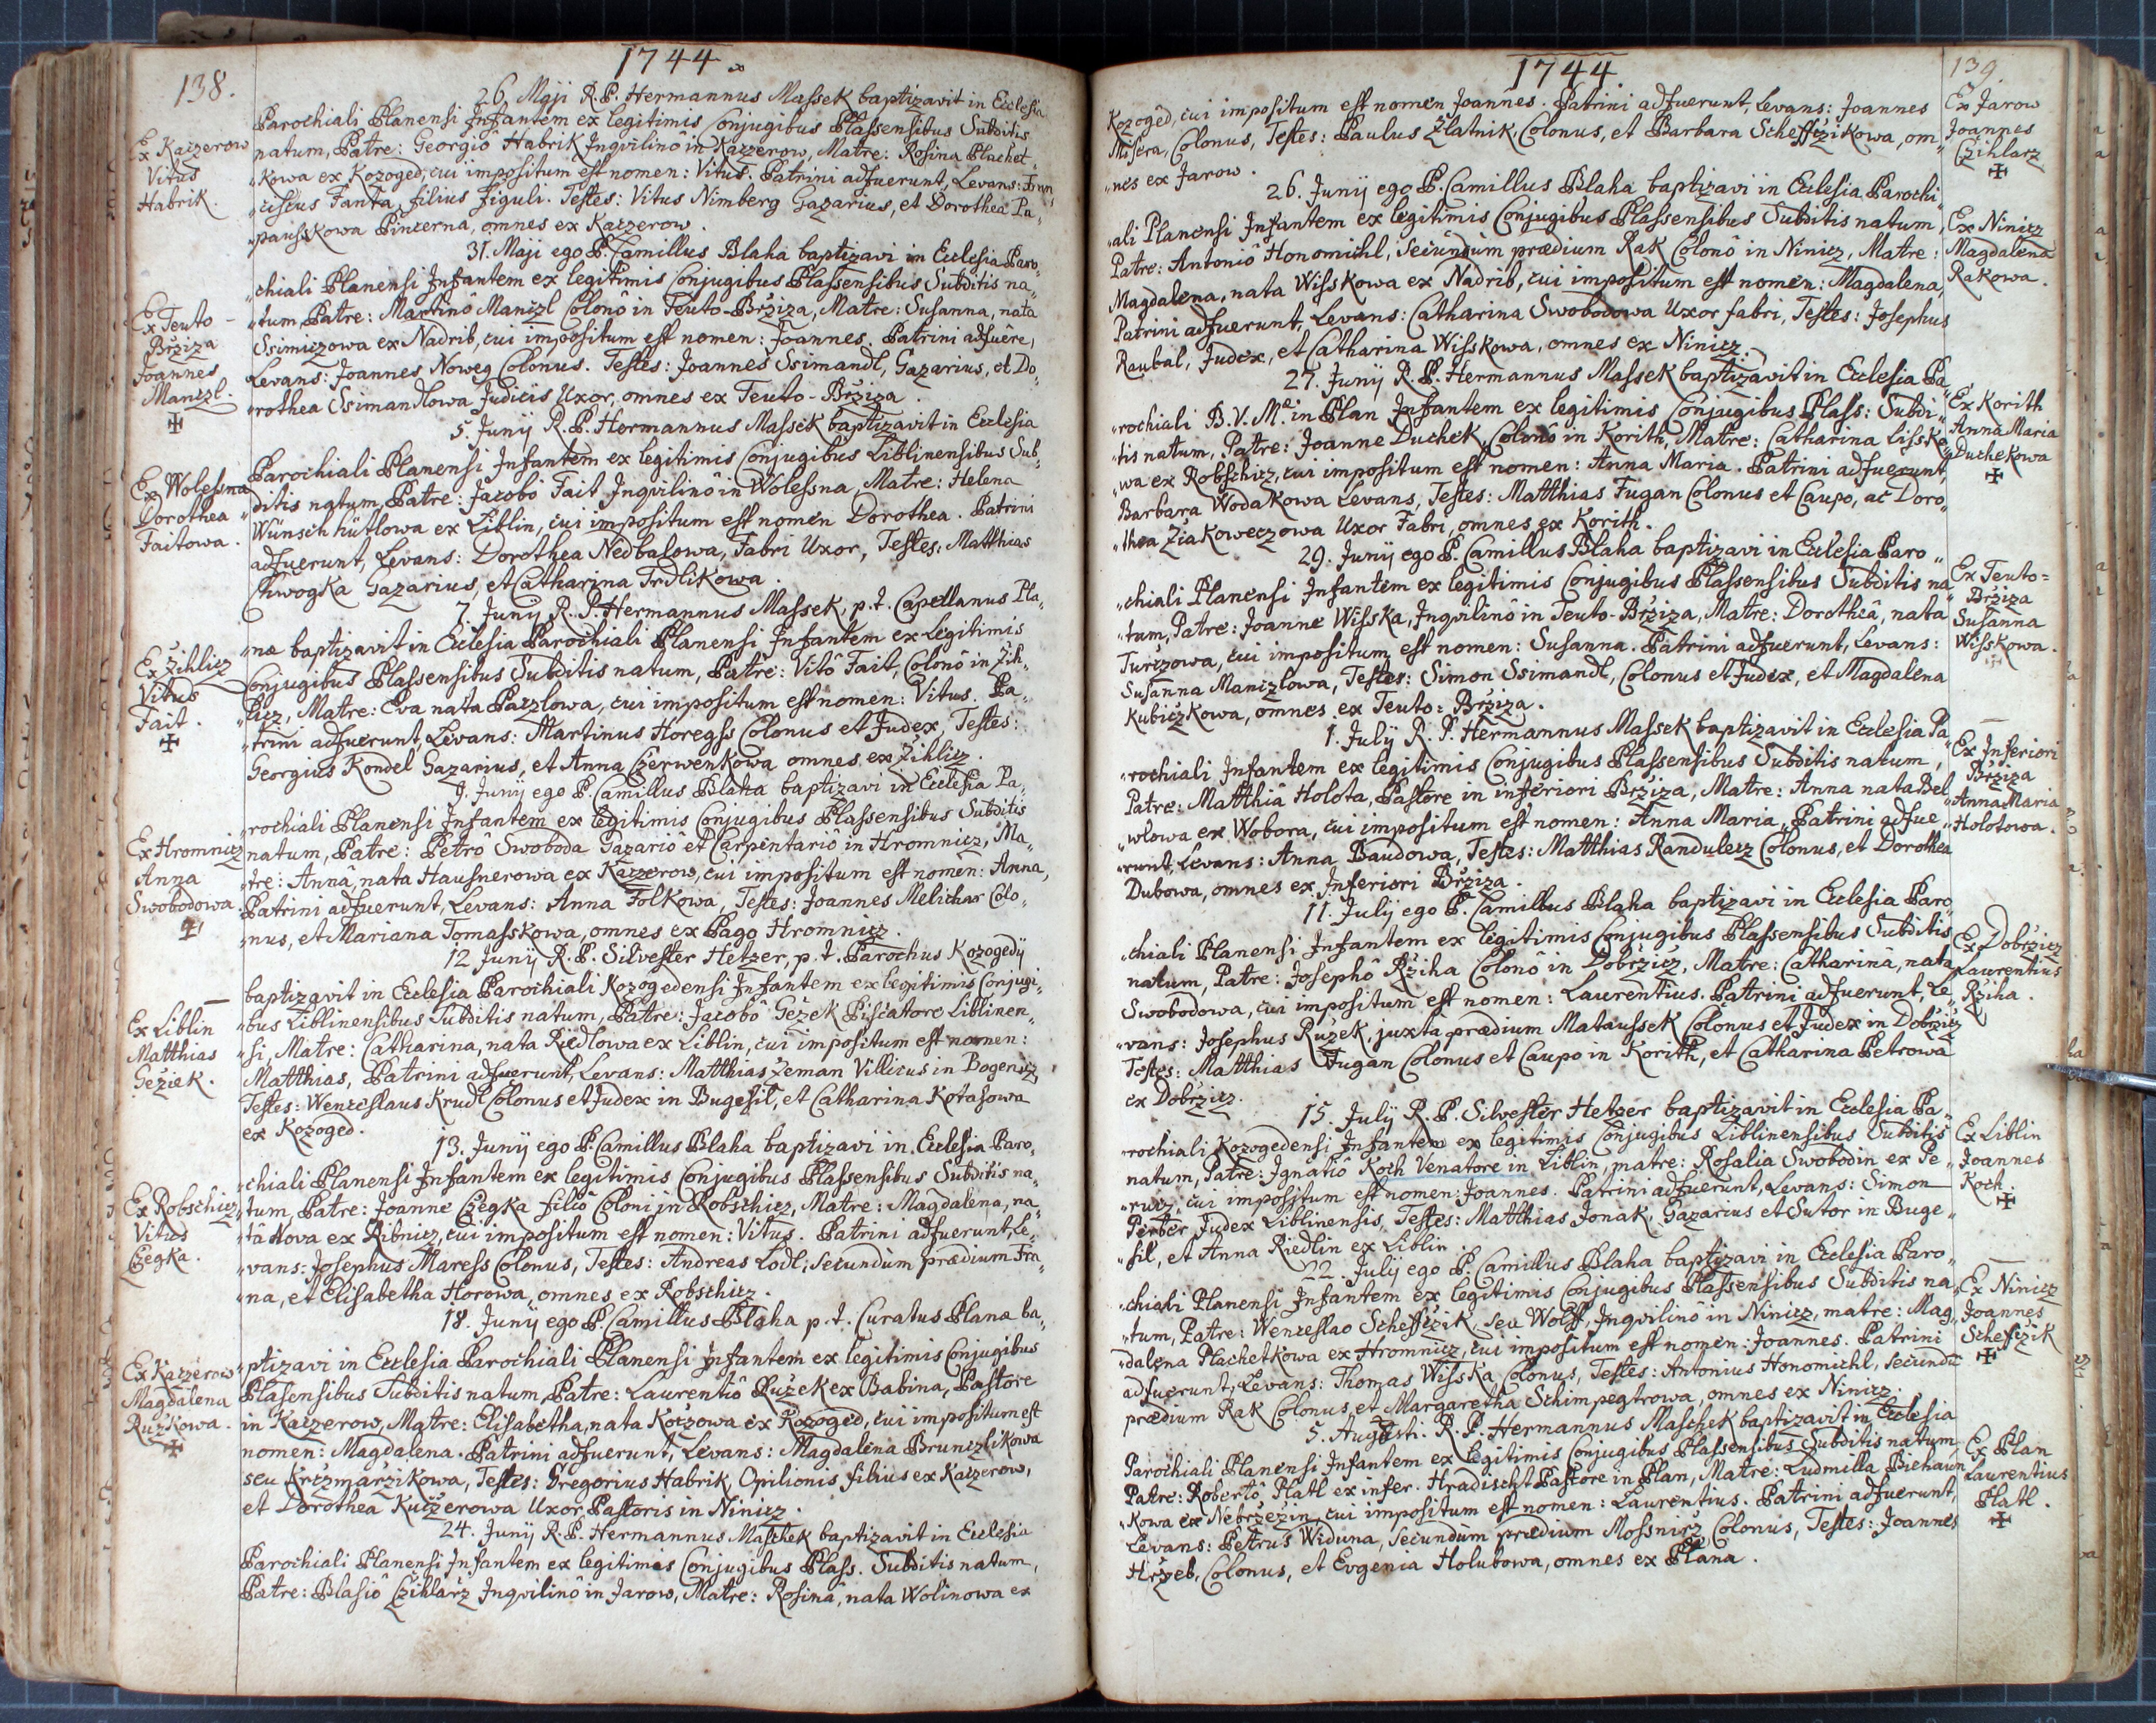 138.
1744.
26 Maji R. P. Hermannus Massek baptizavit in Ecclesia
Parochiali Planensi Infantem ex legitimis Conjugibus Plassensibus Subditis
natum, Patre: Georgiô Habrik Inqvilinô in Kaczerow, Matre: Rosina Plachet„
„kowa ex Kozoged, cui impositum est nomen: Vitus: Patrini adfuerunt, Levans:
„ciscus Fanta, filius figuli. Testes: Vitus Nimberg Gazarius, et Dorothea Pa„
„pausskowa Pincerna, omnes ex Kaczerow.
Ex Kaczerow
Vitus
Habrik.
31. Maji ego P. Camillus Blaha baptizavi in Ecclesia Paro„
„chiali Planensi Infantem ex legitimis Conjugibus Plassensibus Subditis na„
„tum, Patre: Martinô Manczl Colonô in Teuto-Brziza, Matre: Susanna, nata
Ssimiczowa ex Nadrib, cui impositum est nomen: Joannes. Patrini adfuêre,
Levans: Joannes Noweg Colonus. Testes: Joannes Ssimandl, Gazarius, et Do„
„rothea Ssimandlowa Judicis Uxor, omnes ex Teuto-Brziza.
Ex Teuto-
Brziza
Joannes
Manczl.
✠
5. Junÿ R. P. Hermannus Massek baptizavit in Ecclesia
Parochiali Planensi Infantem ex legitimis Conjugibus Liblinensibus Sub„
„ditis natum, Patre: Jacobô Fait Inqvilinô in Wolessna, Matre: Helena
Wünschhütlowa ex Liblin, cui impositum est nomen Dorothea. Patrini
adfuerunt, Levans: Dorothea Nedbalowa, Fabri Uxor, Testes: Matthias
Chwogka Gazarius, et Catharina Trdlikowa.
Ex Wolessna
Dorothea
Faitowa.
7. Junÿ R. P. Hermannus Massek, p. t. Capellanus Pla„
„næ baptizavit in Ecclesia Parochiali Planensi Infantem ex legitimis
Conjugibus Plassensibus Subditis natum, Patre: Vitô Fait, Colonô in Zih„
„licz, Matre: Eva nata Paczlowa, cui impositum est nomen: Vitus. Pa„
„trini adfuerunt, Levans: Martinus Horegss Colonus et Judex, Testes:
Georgius Kondel Gazarius, et Anna Czerwenkowa omnes ex Zihlicz.
Ex Zihlicz
Vitus
Fait.
✠
9. Junÿ ego P. Camillus Blaha baptizavi in Ecclesia Pa„
„rochiali Planensi Infantem ex legitimis Conjugibus Plassensibus Subditis
natum, Patre: Petrô Swoboda Gazariô et Carpentariô in Hromnicz, Ma„
„tre: Annâ, nata Hausnerowa ex Kaczerow, cui impositum est nomen: Anna,
Patrini adfuerunt, Levans: Anna Folkowa, Testes: Joannes Melichar Colo„
„nus, et Mariana Tomasskowa, omnes ex Pago Hromnicz.
Ex Hromnicz
Anna
Swobodowa.
✠
12 Junÿ R. P. Silvester Hetzer, p. t. Parochus Kozogedÿ
baptizavit in Ecclesia Parochiali Kozogedensi Infantem ex legitimis Conjugi„
„bus Liblinensibus Subditis natum, Patre: Jacobô Gežek Piscatore Liblinen„
„si, Matre: Catharina, nata Riedlowa ex Liblin, cui impositum est nomen:
Matthias, Patrini adfuerunt, Levans: Matthias Zeman Villicus in Bogenicz,
Testes: Wenceslaus Krudl Colonus et Judex in Bugesil, et Catharina Kotasowa
ex Kozoged.
Ex Liblin
Matthias
Gežiek.
13. Junÿ ego P. Camillus Blaha baptizavi in Ecclesia Paro„
„chiali Planensi Infantem ex legitimis Conjugibus Plassensibus Subditis na„
„tum, Patre: Joanne Czegka filiô Coloni in Robschicz, Matre: Magdalena, na„
„tâ Hova ex Ribnicz, cui impositum est nomen: Vitus. Patrini adfuerunt, Le„
„vans: Josephus Maress Colonus, Testes: Andreas Lodl, secundum prædium Fra„
„na, et Elisabetha Horowa, omnes ex Robschicz.
Ex Robschicz
Vitus
Czegka.
18. Junÿ ego P. Camillus Blaha p. t. Curatus Planæ ba„
„ptizavi in Ecclesia Parochiali Planensi Infantem ex legitimis Conjugibus
Plasensibus Subditis natum, Patre: Laurentiô Ružek ex Babina, Pastore
in Kaczerow, Matre: Elisabetha, nata Koczowa ex Kozoged, cui impositum est
nomen: Magdalena. Patrini adfuerunt, Levans: Magdalena Brunczlikowa
seu Krczmarzikowa, Testes: Gregorius Habrik, Opilionis filius ex Kaczerow,
et Dorothea Kuczerowa Uxor Pastoris in Ninicz.
Ex Kaczerow
Magdalena
Ružkowa.
✠
24. Junÿ R. P. Hermannus Maschek baptizavit in Ecclesia
Parochiali Planensi Infantem ex legitimis Conjugibus Plass. Subditis natum,
Patre: Blasiô Czihlarz Inqvilinô in Jarow, Matre: Rosinâ, nata Wolinowa ex
1744
139.
Kozogêd, cui impositum est nomen Joannes. Patrini adfuerunt, Levans: Joannes
Misera, Colonus, Testes: Paulus Zlatnik, Colonus, et Barbara Scheffczikowa, om„
„nes ex Jarow.
Ex Jarow
Joannes
Czihlarz
✠
26. Junÿ ego P. Camillus Blaha baptizavi in Ecclesia Parochi„
„ali Planensi Infantem ex legitimis Conjugibus Plassensibus Subditis natum,
Patre: Antoniô Honomichl, secundum prædium Rak Colonô in Ninicz, Matre:
Magdalena, nata Wisskowa ex Nadrib, cui impositum est nomen: Magdalena,
Patrini adfuerunt, Levans: Catharina Swobodowa Uxor fabri, Testes: Josephus
Raubal, Judex, et Catharina Wisskowa, omnes ex Ninicz.
Ex Ninicz
Magdalena
Rakowa.
27. Junÿ R. P. Hermannus Massek baptizavit in Ecclesia Pa„
„rochiali B. V. M. in Plan Infantem ex legitimis Conjugibus Plass: Subdi„
„tis natum, Patre: Joanne Duchek, Colonô in Korith, Matre: Catharina Lissko„
„wa ex Robschicz, cui impositum est nomen: Anna Maria. Patrini adfuerunt,
Barbara Wodakowa Levans, Testes: Matthias Fugan Colonus et Caupo, ac Doro„
„thea Ziakoweczowa Uxor Fabri, omnes ex Korith.
Ex Korith
Anna Maria
Duchekowa
✠
29. Junÿ ego P. Camillus Blaha baptizavi in Ecclesia Paro„
„chiali Planensi Infantem ex legitimis Conjugibus Plassensibus Subditis na„
„tum, Patre: Joanne Wisska, Inqvilinô in Teuto-Brziza, Matre: Dorotheâ, nata
Turczowa, cui impositum est nomen: Susanna. Patrini adfuerunt, Levans:
Susanna Manczlowa, Testes: Simon Ssimandl, Colonus et Judex, et Magdalena
Kubiczkowa, omnes ex Teuto=Brziza.
Ex Teuto=
Brziza
Susanna
Wisskowa.
1. Julÿ R. P. Hermannus Massek baptizavit in Ecclesia Pa„
„rochiali Infantem ex legitimis Conjugibus Plassensibus Subditis natum,
Patre: Matthiâ Holota, Pastore in inferiori Brziza, Matre: Anna nata Bel„
„wlowa ex Wobora, cui impositum est nomen: Anna Maria, Patrini adfue„
„runt, Levans: Anna Baudowa, Testes: Matthias Randulecz Colonus, et Dorothea
Dubowa, omnes ex Inferiori Brziza.
Ex Inferiori
Brziza
Anna Maria
Holotowa.
11. Julÿ ego P. Camillus Blaha baptizavi in Ecclesia Paro„
„chiali Planensi Infantem ex legitimis Conjugibus Plassensibus Subditis
natum, Patre: Josephô Rziha Colonô in Dobrzicz, Matre: Catharinâ, nata
Swobodowa, cui impositum est nomen: Laurentius. Patrini adfuerunt, Le„
„vans: Josephus Ružek, juxta prædium Mataussek Colonus et Judex in Dobrzicz
Testes: Matthias Fugan Colonus et Caupo in Korith, et Catharina Petrowa
ex Dobrzicz.
Ex Dobrzicz
Laurentius
Rziha.
15. Julÿ R. P. Silvester Hetzer baptizavit in Ecclesia Pa„
„rochiali Kozogedensi Infantem ex legitimis Conjugibus Liblinensibus Subditis
natum, Patre: Ignatiô Koch Venatore in Liblin, matre: Rosalia Swobodin ex Pe„
„rucz, cui impositum est nomen: Joannes. Patrini adfuerunt, Levans: Simon
Perber Judex Liblinensis, Testes: Matthias Jonak, Gazarius et Sutor in Buge„
„sil, et Anna Riedlin ex Liblin.
Ex Liblin
Joannes
Koch.
✠
22. Julÿ ego P. Camillus Blaha baptizavi in Ecclesia Paro„
„chiali Planensi Infantem ex legitimis Conjugibus Plassensibus Subditis na„
„tum, Patre: Wenceslao Scheffczik, seu Wolff, Inqvilinô in Ninicz, matre: Mag„
„dalena Plachetkowa ex Hromnicz, cui impositum est nomen: Joannes. Patrini
adfuerunt, Levans: Thomas Wisska Colonus, Testes: Antonius Honomichl, secundû
prædium Rak Colonus, et Margaretha Schimpegtrowa, omnes ex Ninicz.
Ex Ninicz
Joannes
Scheffczik
✠
5. Augusti. R. P. Hermannus Maschek baptizavit in Ecclesia
Parochiali Planensi Infantem ex legitimis Conjugibus Plassensibus Subditis natum
Patre: Robertô Platl ex infer. Hradischt Pastore in Plan, Matre: Ludmilla Biehaun„
„kowa ex Nebrzezin, cui impositum est nomen: Laurentius. Patrini adfuerunt,
Levans: Petrus Widuna, secundum prædium Mossnicz Colonus, Testes: Joannes
Hrzeb, Colonus, et Evgenia Holubowa, omnes ex Plana.
Ex Plan
Laurentius
Platl.
✠